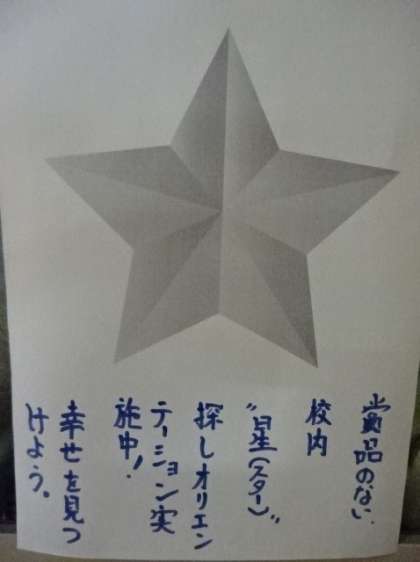 賞品のない
校内
“星(スター)”
探しオリエン
テーション実
施中!
幸せを見つ
けよう。